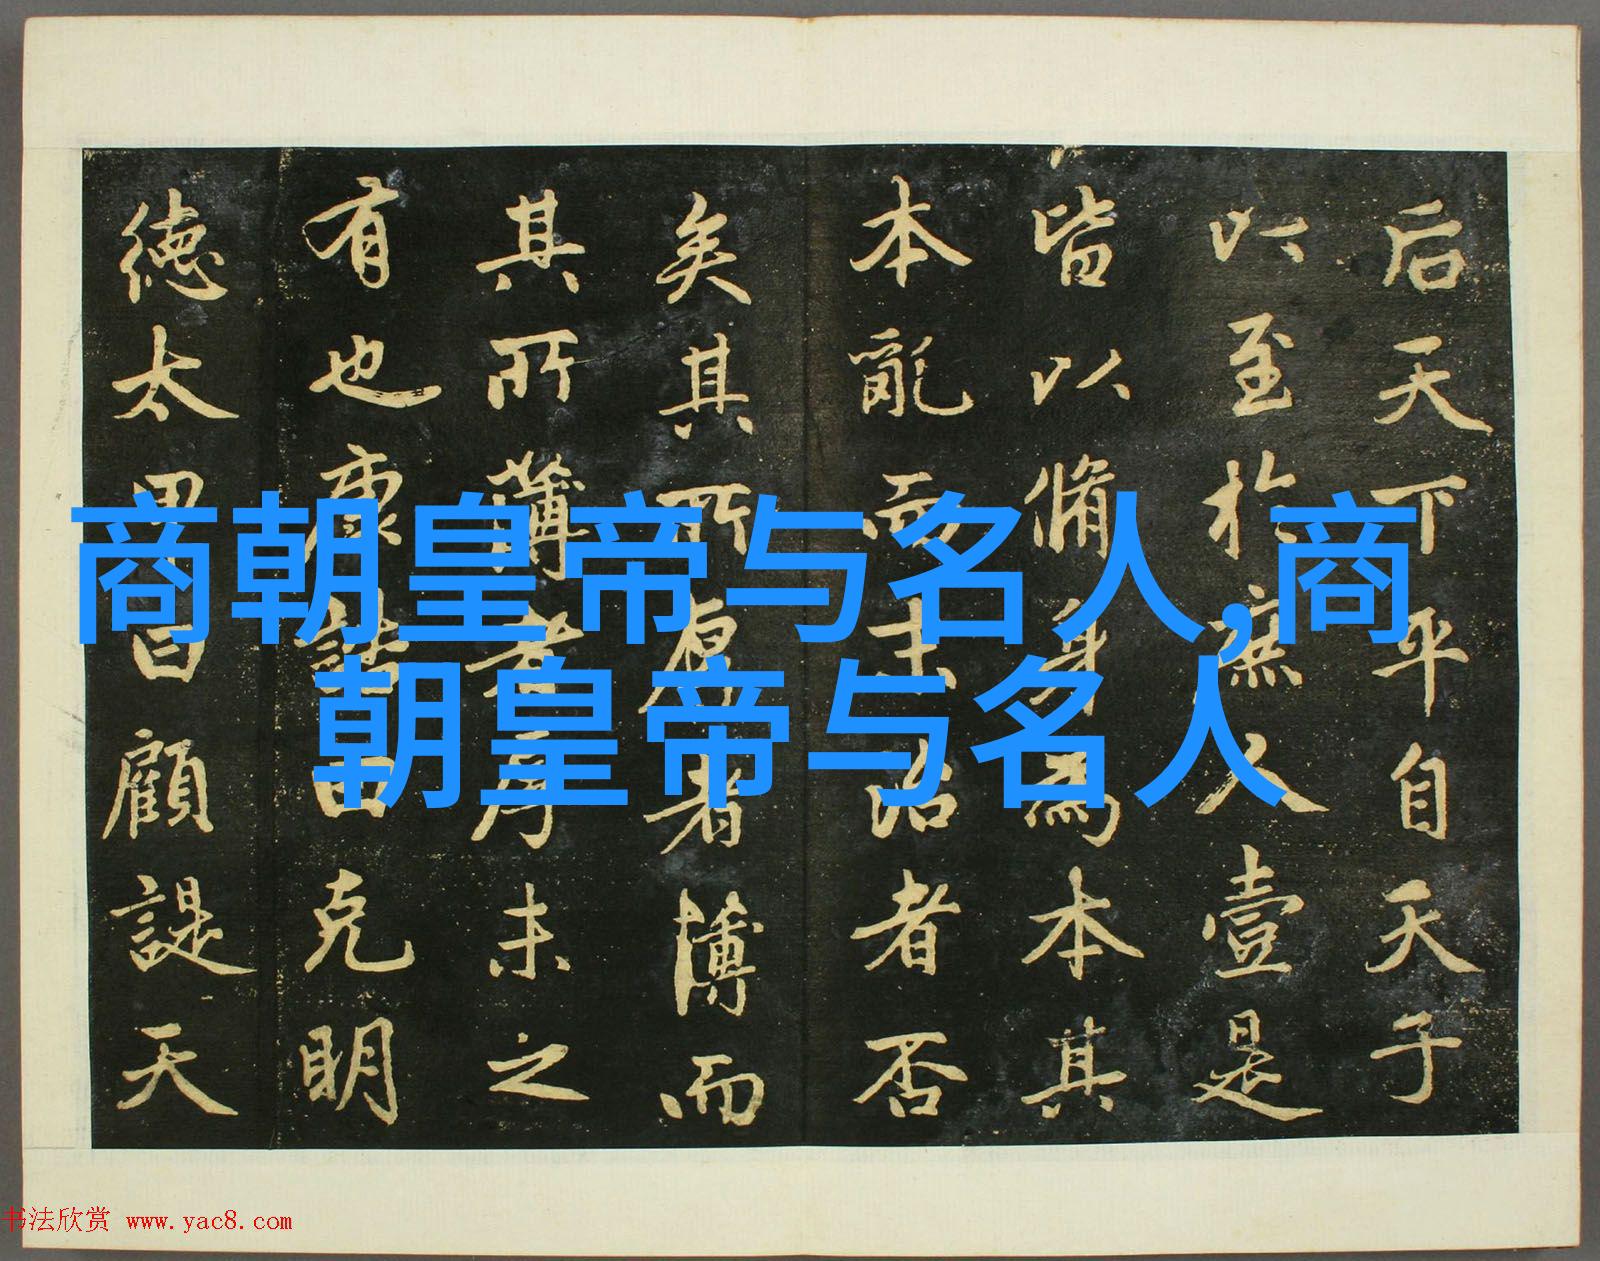 商朝皇帝与名人,商
朝皇帝与名人
后天下平自天子
以至於庶人壹是
皆以脩身為本其
本亂而末治者否
矣其所厚者薄而
其所薄者厚未之
有也康誥曰克明
徳太甲曰顧諟天
书法欣赏 www.yac8.com